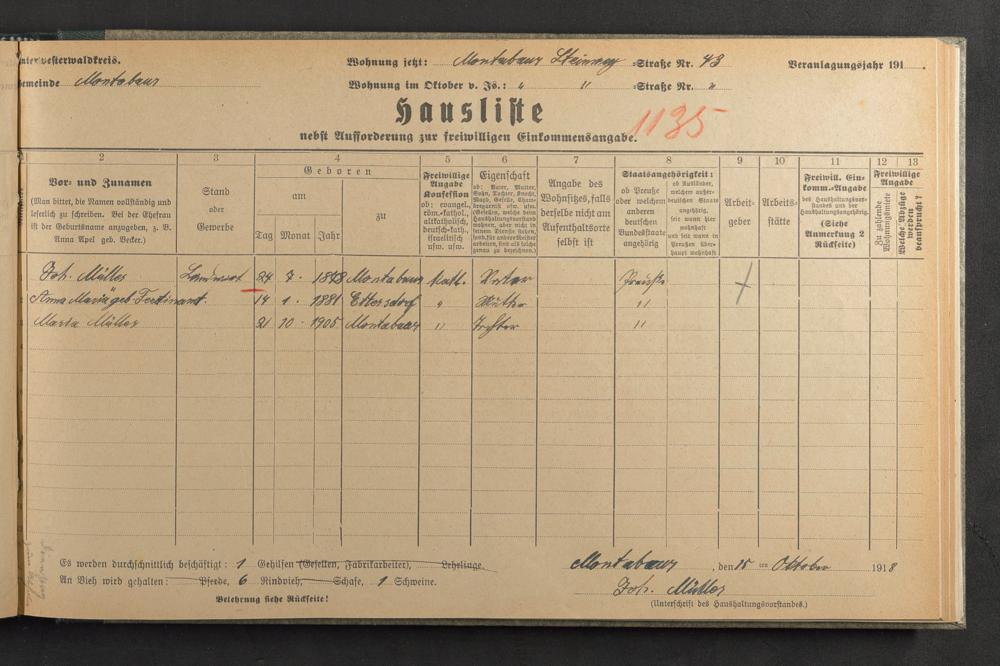 nterwesterwaldkreis. Wohnung jetzt: Montabaur Steinweg =Straße Nr. 43 Veranlagungsjahr 191
emeinde Montabaur Wohnung im Oktober v. Js.: " " =Straße Nr. "
Hausliste
nebst Aufforderung zur freiwilligen Einkommensangabe.
1135
2 3 4 5 6 7 8 9 10 11 12 13
Vor- und Zunamen
(Man bittet, die Namen vollständig und
leserlich zu schreiben. Bei der Ehefrau
ist der Geburtsname anzugeben, z. B.
Anna Apel geb. Becker.)
Stand
oder
Gewerbe
Geboren
am
zu
Tag Monat Jahr
Freiwillige
Angabe
Konfession
ob: evangel.,
röm.-kathol.,
altkatholisch,
deutsch-kath.,
israelitisch
usw. usw.
Eigenschaft
ob: Vater, Mutter,
Sohn, Tochter, Knecht,
Magd,
Angabe des
Wohnsitzes, falls
derselbe nicht am
Aufenthaltsorte
selbst ist
Staatsangehörigkeit:
ob Preuße
oder welchem
anderen
deutschen
Bundesstaate
angehörig
ob Ausländer,
welchem außer-
deutschen Staate
angehörig,
seit wann hier
wohnhaft
und seit wann in
Preußen über-
haupt wohnhaft
Arbeit-
geber
Arbeits-
stätte
Freiwill. Ein-
komm.-Angabe
des Haushaltungsvor-
standes und der
Haushaltungsangehörig.
(Siehe
Anmerkung 2
Rückseite)
Freiwillige
Angabe
Zu zahlende
Wohnungsmiete
Welche Abzüge
werden
beansprucht?
Joh. Müller Landwirt 24 7 1878 Montabaur kath. Vater Preuße
Anna Maria geb. Ferdinant 14 1 1881 Ettersdorf " Mutter "
Maria Müller 21 10 1905 Montabaur " Tochter "
Es werden durchschnittlich beschäftigt: 1 Gehilfen (Gesellen, Fabrikarbeiter), Lehrlinge.
An Vieh wird gehalten: Pferde, 6 Rindvieh, Schafe, 1 Schweine.
Belehrung siehe Rückseite!
Montabaur, den 15 ten Oktober 1918
Joh. Müller
(Unterschrift des Haushaltungsvorstandes.)